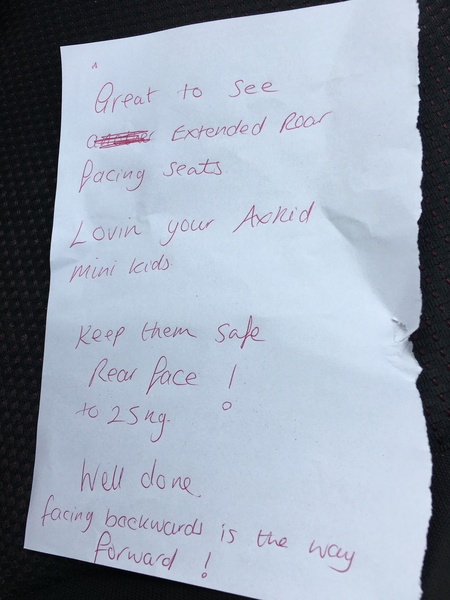 Great to see
another Extended Rear
facing seats
Lovin your Axkid
mini kids.
Keep them safe
Rear face !
to 25kg.
Well done.
facing backwards is the way
forward !